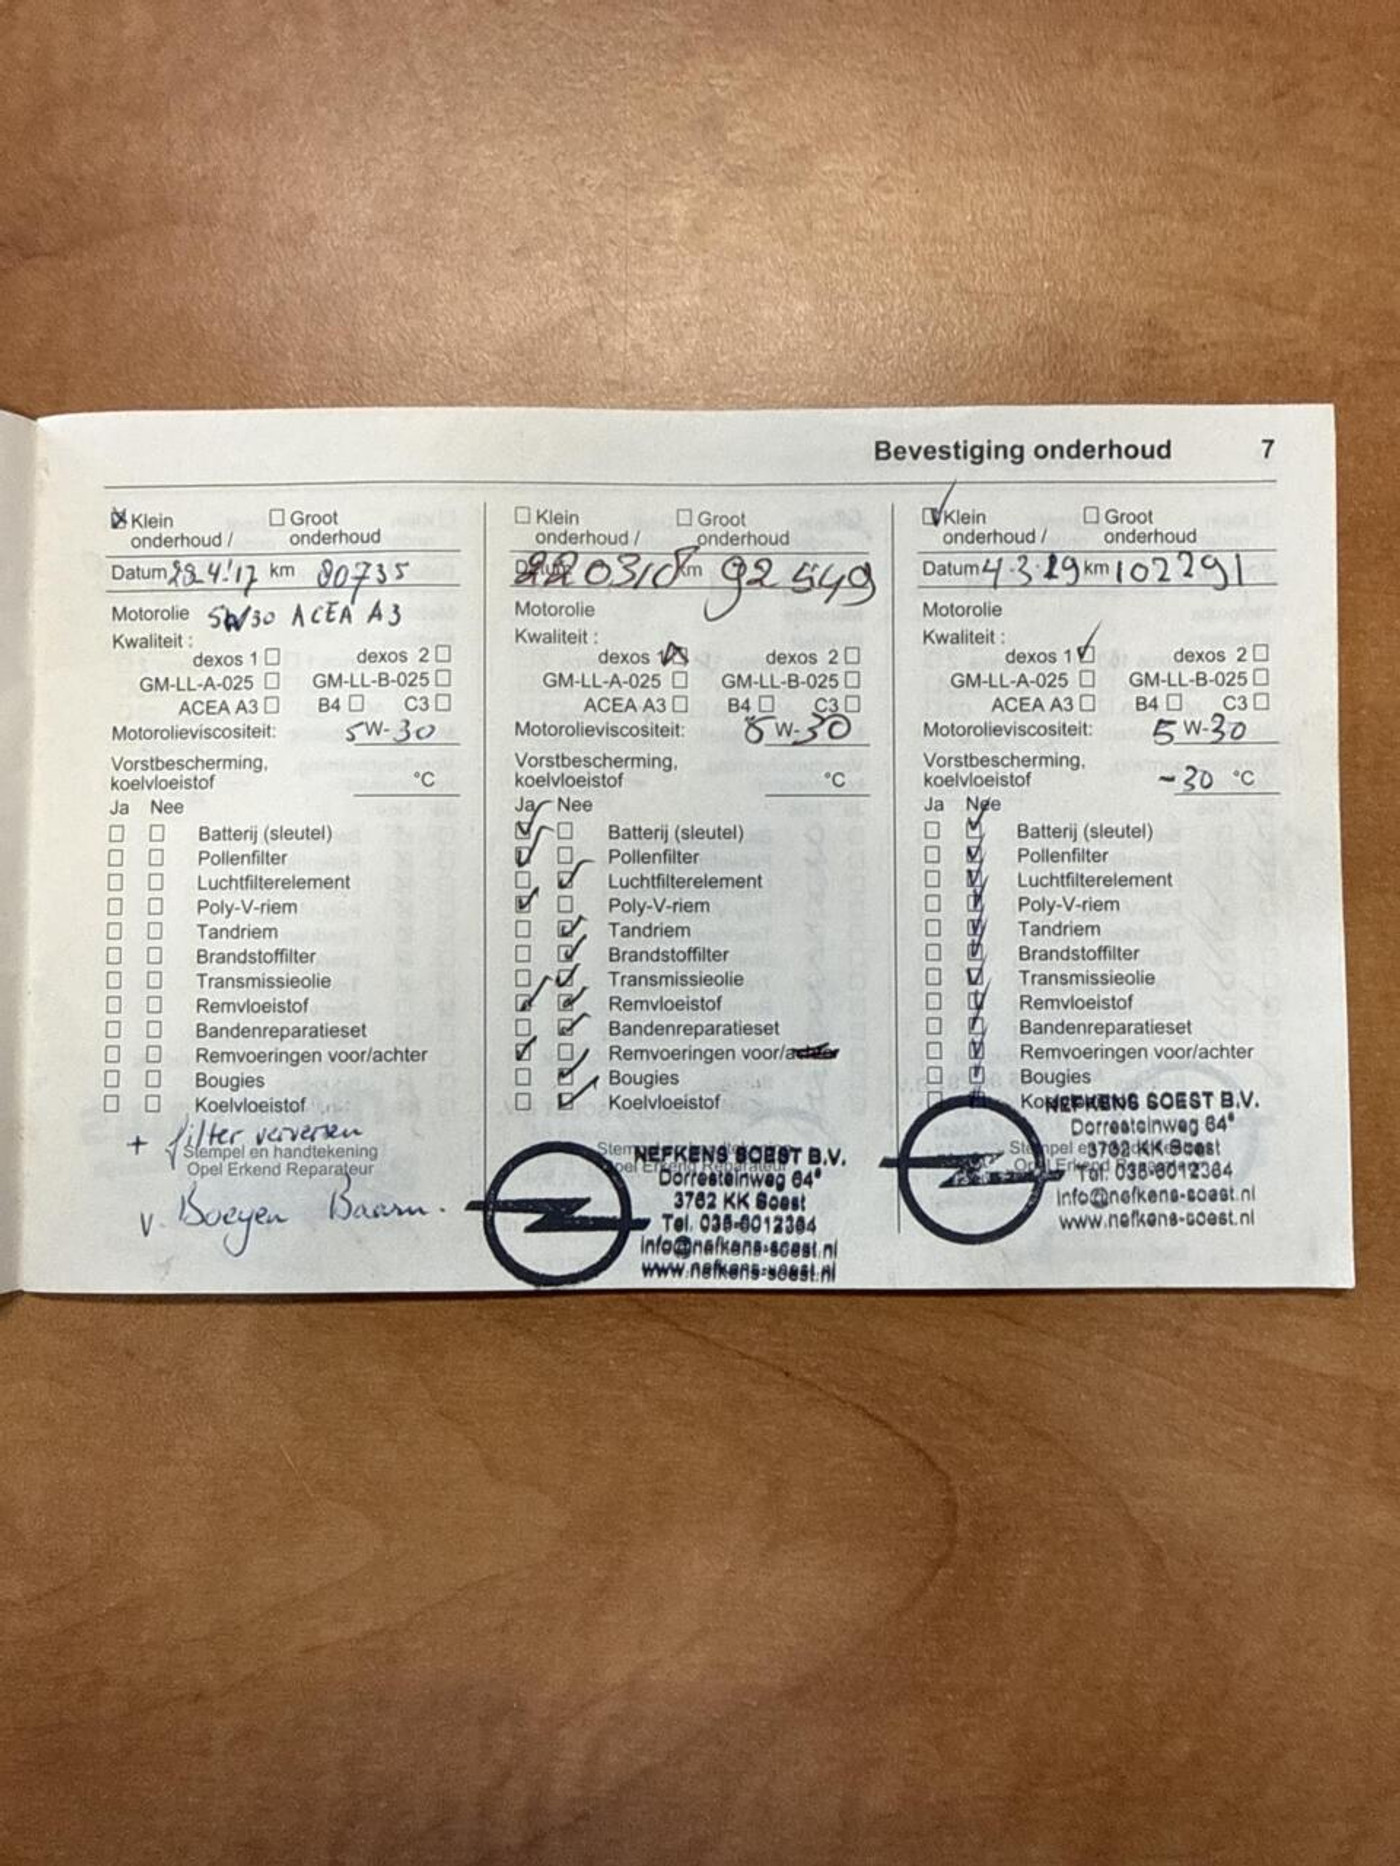 Bevestiging onderhoud 7
Klein onderhoud / Groot onderhoud
Datum 4.'17 km 80735
Motorolie 5W/30 ACEA A3
Kwaliteit :
dexos 1 dexos 2
GM-LL-A-025 GM-LL-B-025
ACEA A3 B4 C3
Motorolieviscositeit: 5W-30
Vorstbescherming,
koelvloeistof °C
Ja Nee
Batterij (sleutel)
Pollenfilter
Luchtfilterelement
Poly-V-riem
Tandriem
Brandstoffilter
Transmissieolie
Remvloeistof
Bandenreparatieset
Remvoeringen voor/achter
Bougies
Koelvloeistof
+ filter verversen
Stempel en handtekening
Opel Erkend Reparateur
v. Boeyen Baarn.
Klein onderhoud / Groot onderhoud
km 92549
Motorolie
Kwaliteit :
dexos 1 dexos 2
GM-LL-A-025 GM-LL-B-025
ACEA A3 B4 C3
Motorolieviscositeit: 5 W-30
Vorstbescherming,
koelvloeistof °C
Ja Nee
Batterij (sleutel)
Pollenfilter
Luchtfilterelement
Poly-V-riem
Tandriem
Brandstoffilter
Transmissieolie
Remvloeistof
Bandenreparatieset
Remvoeringen voor/achter
Bougies
Koelvloeistof
NEFKENS SOEST B.V.
Dorresteinweg 64ª
3762 KK Soest
Tel. 035-6012364
info@nefkens-soest.nl
www.nefkens-soest.nl
Klein onderhoud / Groot onderhoud
Datum 4.3.19 km 102291
Motorolie
Kwaliteit :
dexos 1 dexos 2
GM-LL-A-025 GM-LL-B-025
ACEA A3 B4 C3
Motorolieviscositeit: 5 W-30
Vorstbescherming,
koelvloeistof -30 °C
Ja Nee
Batterij (sleutel)
Pollenfilter
Luchtfilterelement
Poly-V-riem
Tandriem
Brandstoffilter
Transmissieolie
Remvloeistof
Bandenreparatieset
Remvoeringen voor/achter
Bougies
NEFKENS SOEST B.V.
Dorresteinweg 64ª
3762 KK Soest
Tel. 035-6012364
info@nefkens-soest.nl
www.nefkens-soest.nl